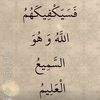 فَسَيَكْفِيكَهُمُ
اللَّهُ وَ هُوَ
السَّمِيعُ
الْعَلِيمُ